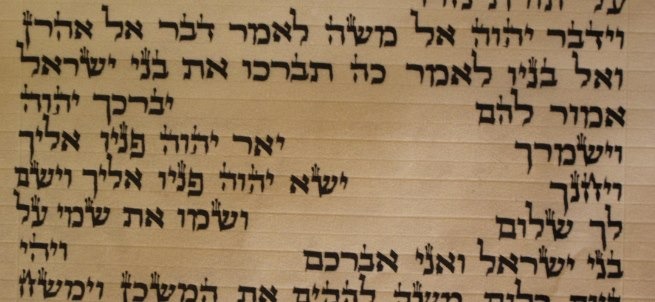 על תורת נזרו
וידבר יהוה אל משה לאמר דבר אל אהרן
ואל בניו לאמר כה תברכו את בני ישראל
אמור להם יברכך יהוה
וישמרך יאר יהוה פניו אליך
ויחנך ישא יהוה פניו אליך וישם
לך שלום ושמו את שמי על
בני ישראל ואני אברכם ויהי
ביום כלות משה להקים את המשכן וימשח